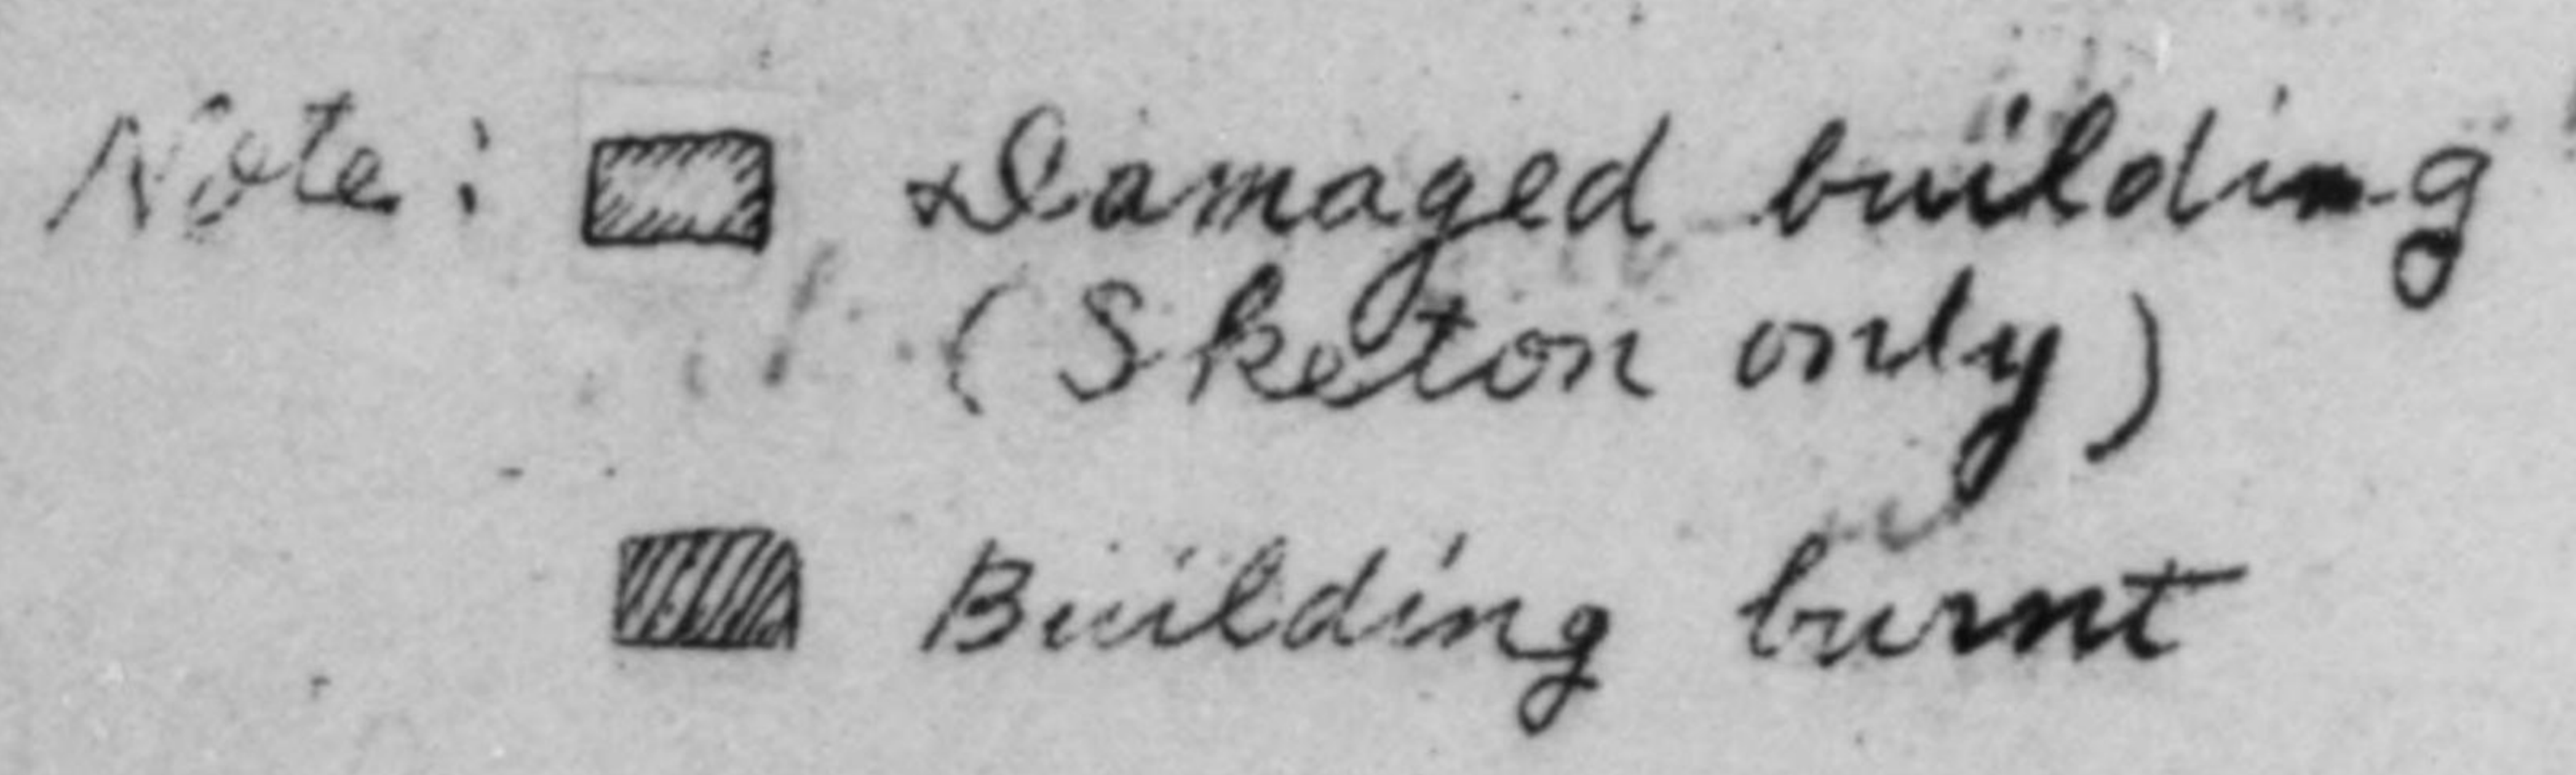 Note: Damaged building
(Sketon only)
Building burnt